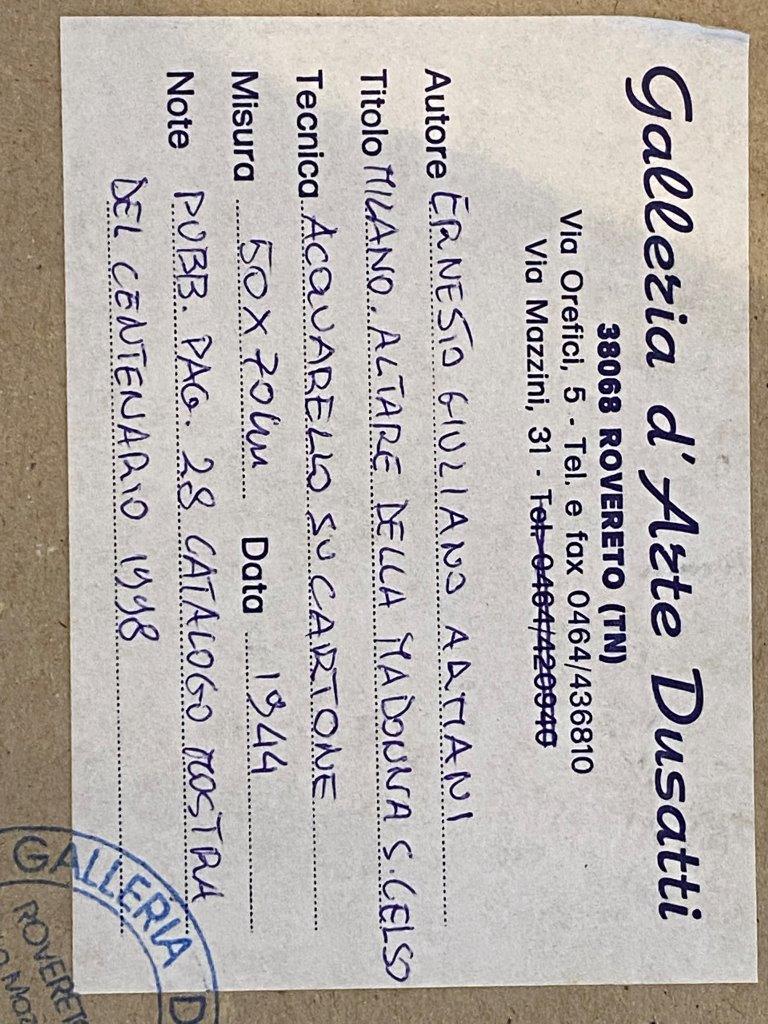 Galleria d'Arte Dusatti
38068 ROVERETO (TN)
Via Orefici, 5 - Tel. e fax 0464/436810
Via Mazzini, 31 - Tel. 0464/420940
Autore ERNESTO GIULIANO ARMANI
Titolo MILANO. ALTARE DELLA MADONNA S. CELSO
Tecnica ACQUARELLO SU CARTONE
Misura 50 x 70 cm Data 1944
Note PUBB. PAG. 28 CATALOGO MOSTRA
DEL CENTENARIO 1998
GALLERIA D
ROVERET